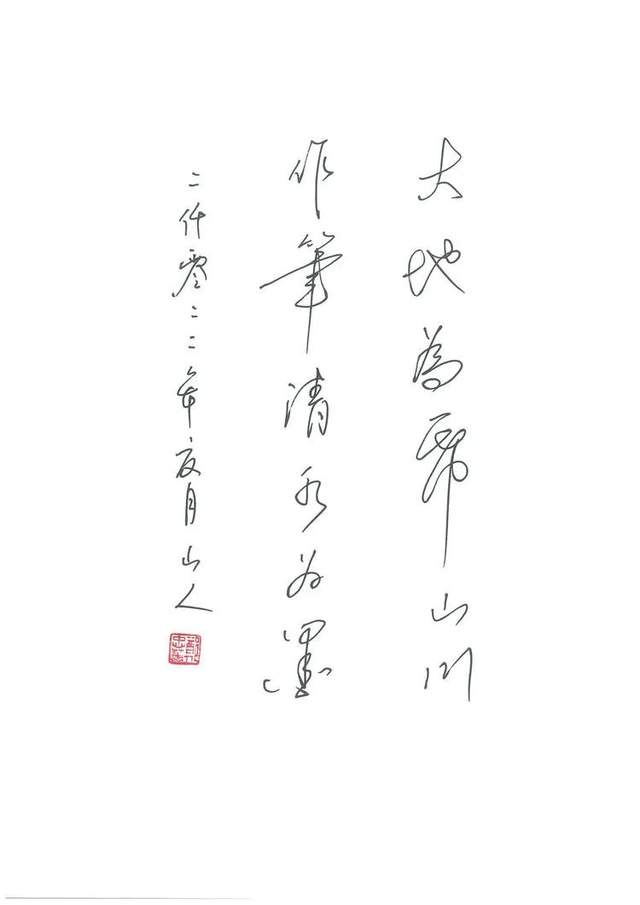 大地為帋山川
作筆清水为墨
二仟零二二年月山人